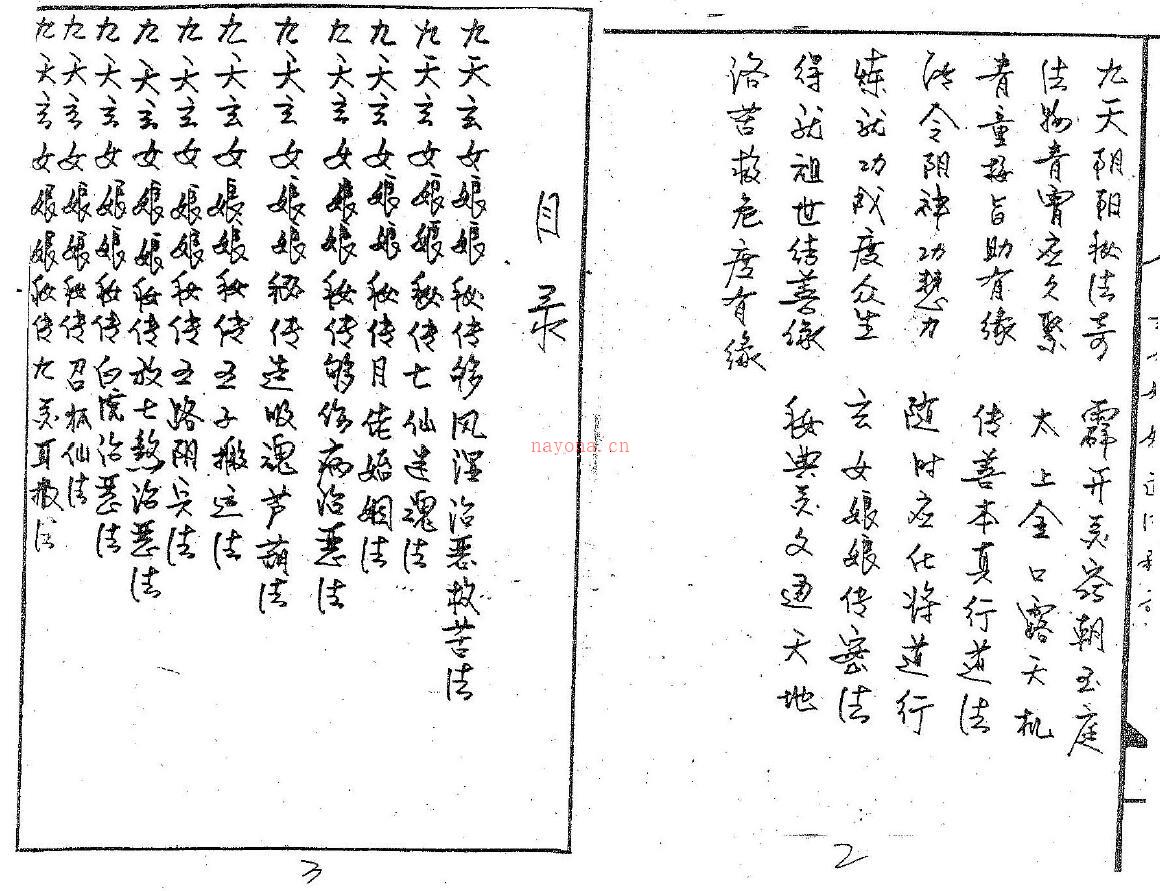 九天朝阳秘法奇 霹开灵窍朝玉庭
法物青霄应久聚 太上金口露天机
青童接旨助有缘 传善本真行道法
法令阴神功慧力 随时应化将道行
炼就功成度众生 玄女娘娘传密法
得就祖世结善缘 秘典灵文通天地
洛苦救危度有缘
2
目录
九天玄女娘娘秘传移风湿治恶救苦法
九天玄女娘娘秘传七仙迷魂法
九天玄女娘娘秘传月佬婚姻法
九天玄女娘娘秘传移伤病治恶法
九天玄女娘娘秘传造吸魂芦葫法
九天玄女娘娘秘传五子搬运法
九天玄女娘娘秘传五路阴兵法
九天玄女娘娘秘传放七煞治恶法
九天玄女娘娘秘传白院治恶法
九天玄女娘娘秘传召狐仙法
九天玄女娘娘秘传九灵耳报法
3
nayona.cn